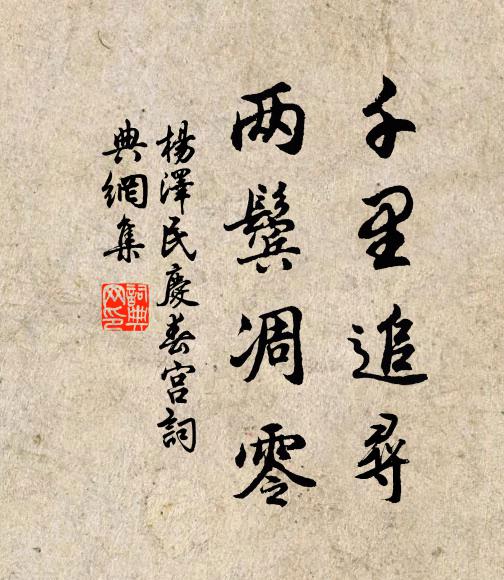 千里追尋
两鬓凋零
楊澤民慶春宮詞
典網集
詞典网印